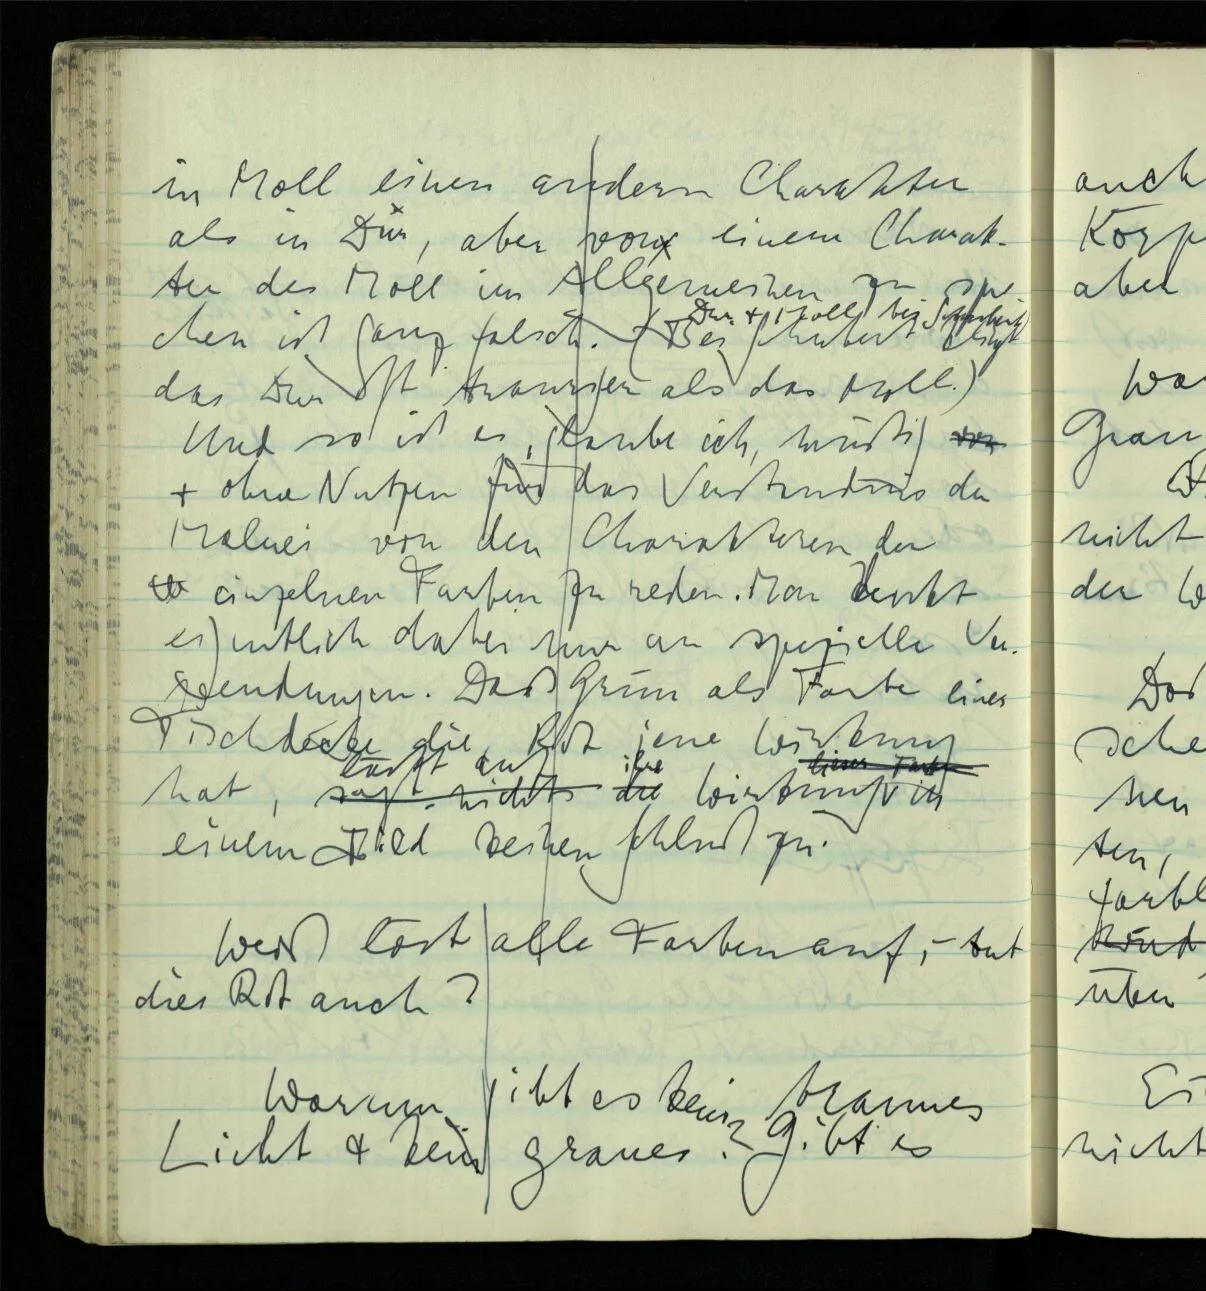 in Moll einen andern Charakter
als in Dur, aber von einem Charak-
ter des Moll im Allgemeinen zu spre
chen ist ganz falsch. (Bei Schubert klingt
das Dur oft trauriger als das Moll.)
Und so ist es, glaube ich, müßig von
+ ohne Nutzen für das Verständnis der
Malerei von den Charakteren der
einzelnen Farben zu reden. Man denkt
eigentlich dabei nur an spezielle Ver-
wendungen. Daß Grün als Farbe einer
Tischdecke die, Rot jene Wirkung
läßt auf ihre dieser Farbe
hat, sagt nichts die Wirkung in
einem Bild keinen Schluß zu.
Weiß löst alle Farben auf, – tut
dies Rot auch?
Warum gibt es kein braunes
Licht & kein graues? Gibt es
auch
Körp
aber
War
Grau
nicht
der W
sche
nen
ten,
farbl
über
nicht